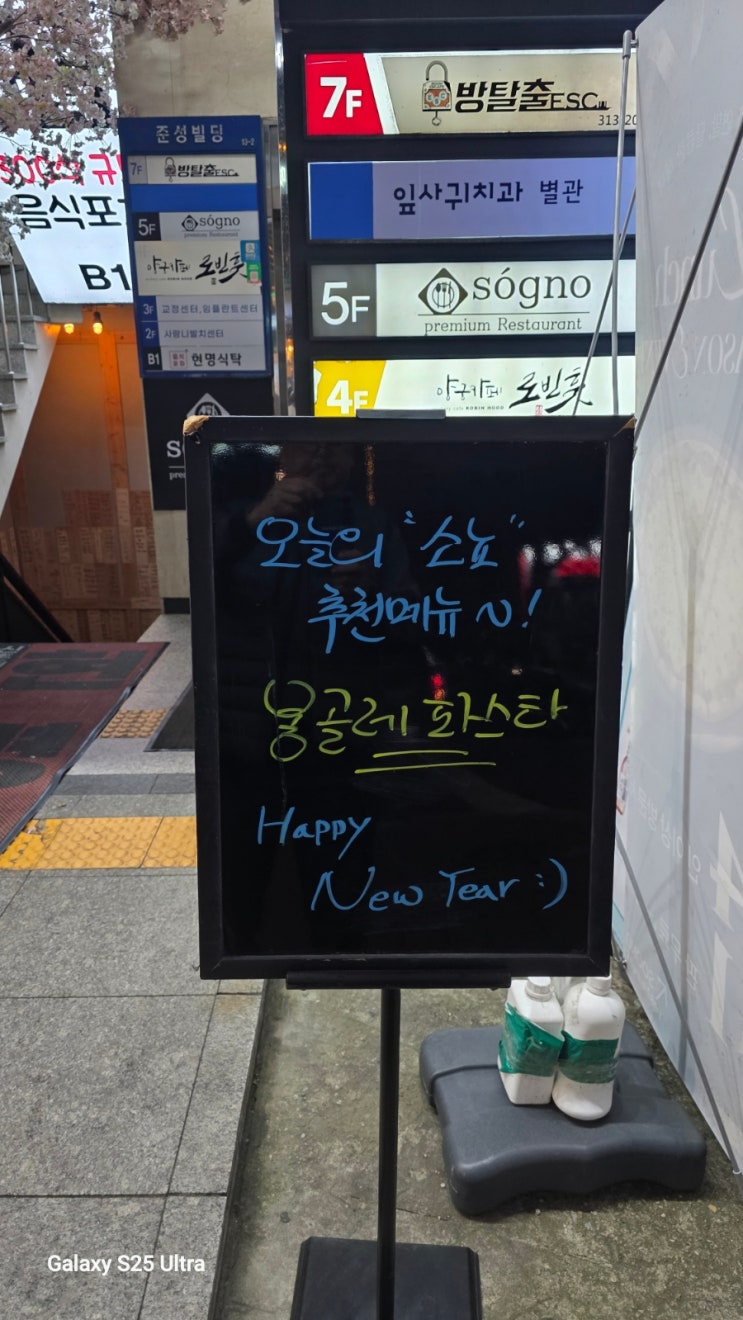 7F
방탈출ESC
313.20
잎사귀치과 별관
5F
sógno
premium Restaurant
4F
야구카페 로빈훗
ROBIN HOOD
준성빌딩
13-2
7F
방탈출ESC
5F
sógno
premium Restaurant
야구카페 로빈훗
3F 교정센터,임플란트센터
2F 사랑니발치센터
B1 현명식탁
음식포
B1
오늘의 "소뇨"
추천메뉴~!
봉골레 파스타
Happy
New Year :)
Galaxy S25 Ultra